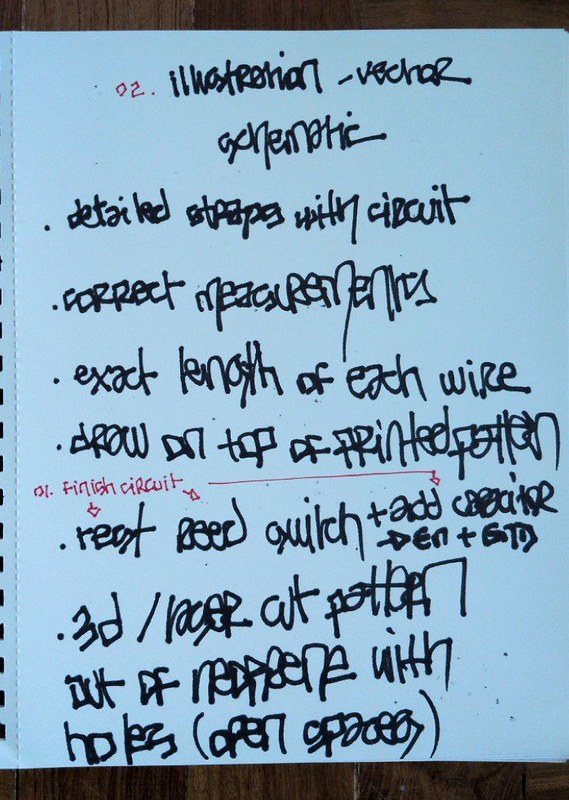 02. illustration - vector
schematic
. detailed straps with circuit
. correct measurements
. exact length of each wire
. draw on top of printed pattern
01. Finish circuit
. test reed switch + add capacitor
→ En + GND
. 3d / laser cut pattern
out of neoprene with
holes (open spaces)